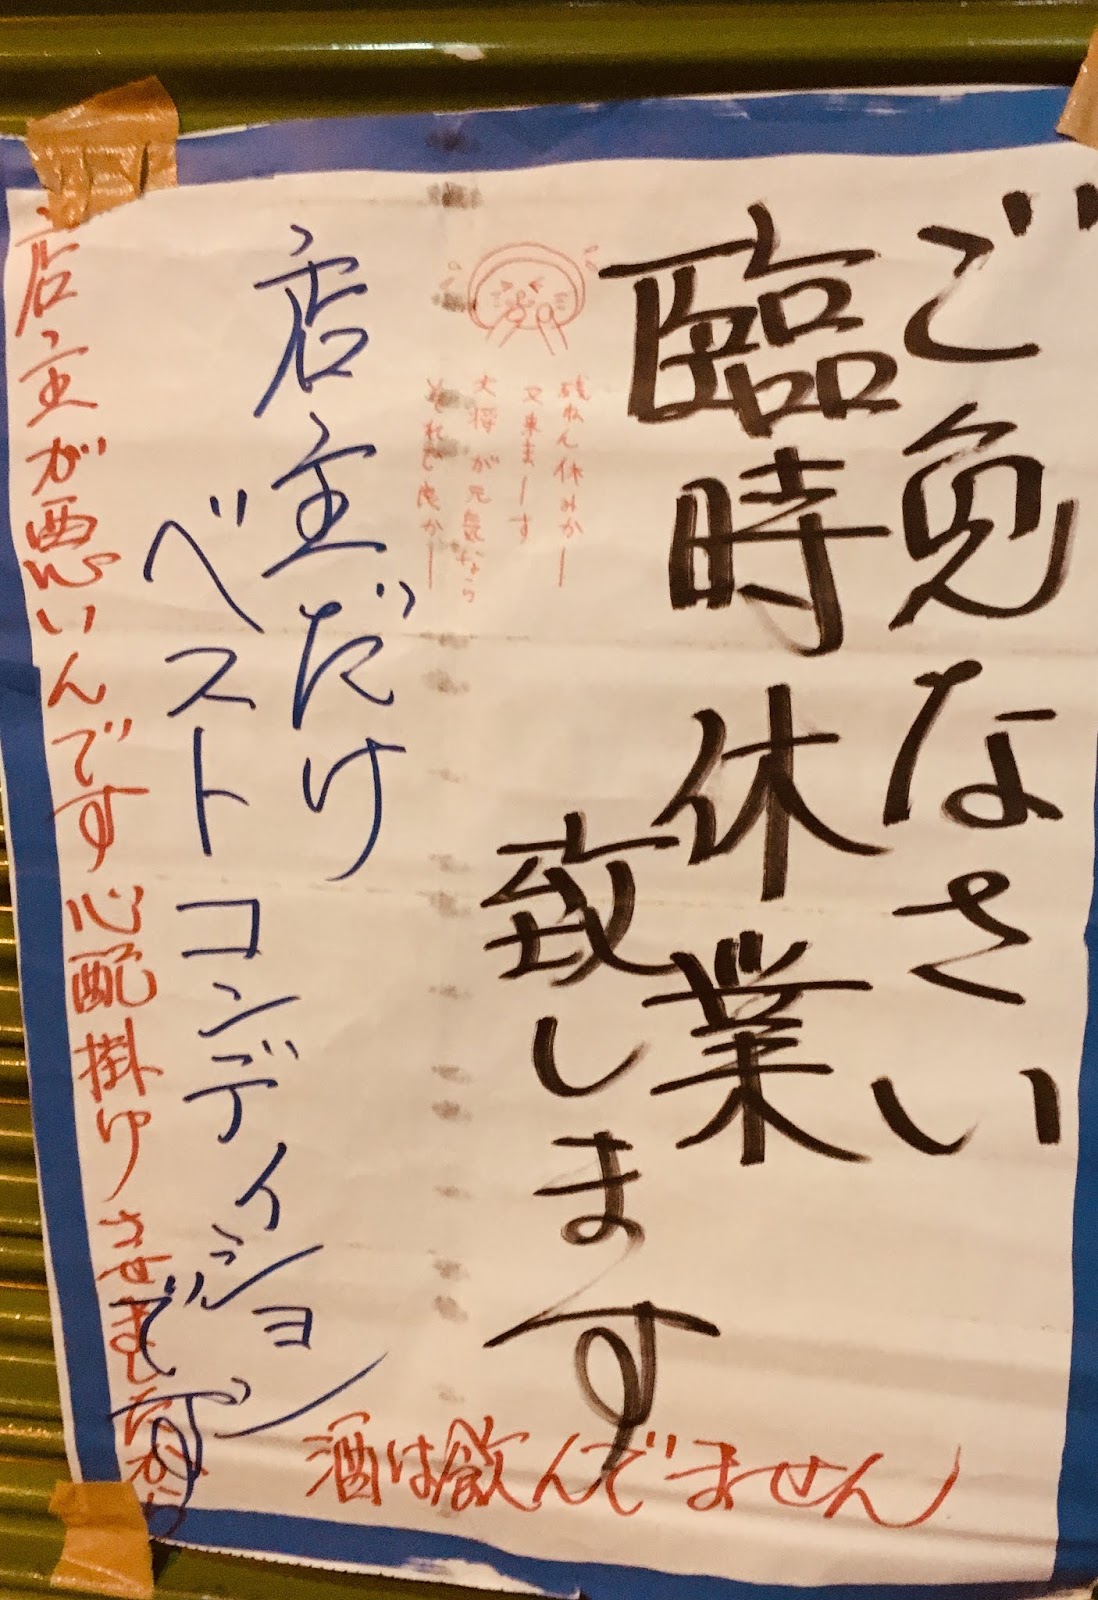 ご免なさい
臨時休業
致します
残ねん休みかー
又来まーす
大将が元気なら
それで良かー
店主だけ
ベストコンディション
です
店主が悪いんです心配掛けさせましたから
酒は飲んでません